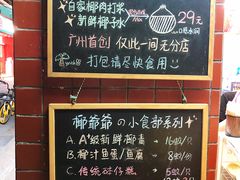 自家椰肉打浆
新鲜椰子水 29元
广州首创 仅此一间无分店
打包请尽快食用
椰爷爷の小食部系列
A. A级新鲜椰青 → 16蚊/只
B. 椰汁鱼蛋/鱼腐 → 8蚊/份
C. 传统砵仔糕 → 5蚊/